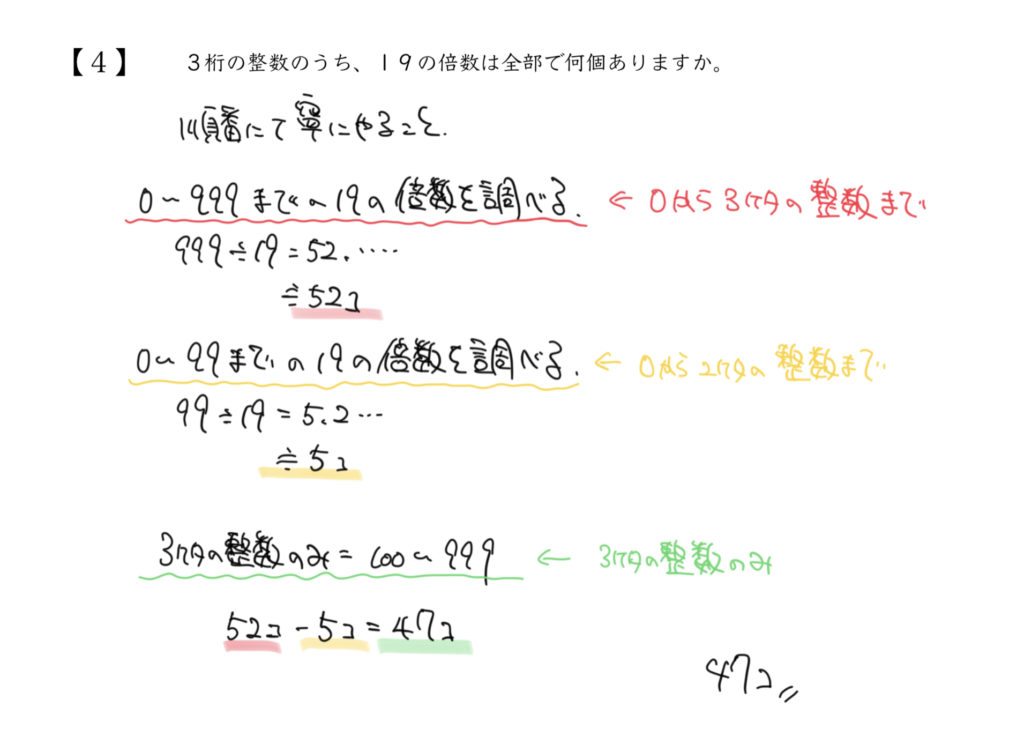 【4】 3桁の整数のうち、19の倍数は全部で何個ありますか。
順番にて寧にやること.
0~999までの19の倍数を調べる. ← 0から3ケタの整数まで
999÷19=52.....
≒52コ
0~99までの19の倍数を調べる. ← 0から2ケタの整数まで
99÷19=5.2...
≒5コ
3ケタの整数のみ=100~999 ← 3ケタの整数のみ
52コ-5コ=47コ
47コ〃